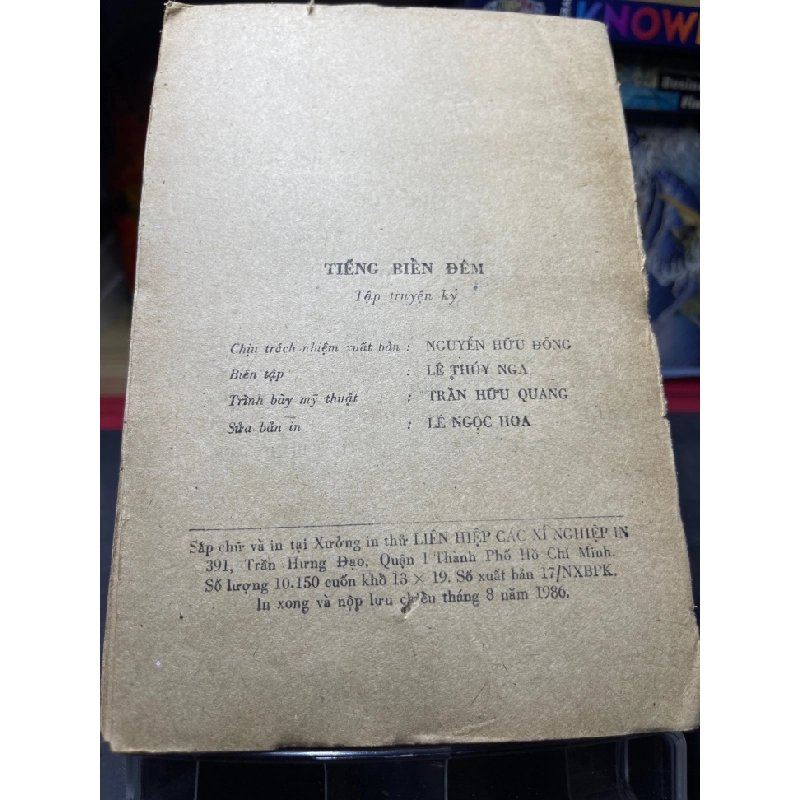 KNOW
Busine
Fin
TIẾNG BIỂN ĐÊM
Tập truyện ký
Chịu trách nhiệm xuất bản : NGUYỄN HỮU ĐÔNG
Biên tập : LÊ THÚY NGA
Trình bày mỹ thuật : TRẦN HỮU QUANG
Sửa bản in : LÊ NGỌC HOA
Sắp chữ và in tại Xưởng in thử LIÊN HIỆP CÁC XÍ NGHIỆP IN
391, Trần Hưng Đạo, Quận 1 Thành Phố Hồ Chí Minh.
Số lượng 10.150 cuốn khổ 13 × 19. Số xuất bản 17/NXBPK.
In xong và nộp lưu chiểu tháng 8 năm 1986.